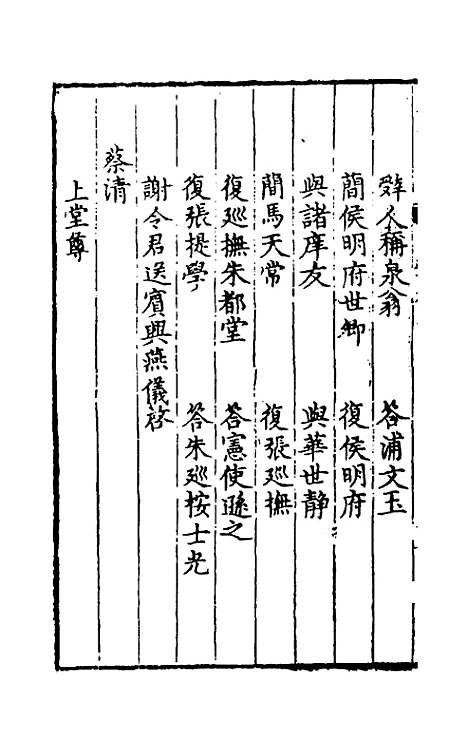 辤人稱泉翁　荅浦文玉
簡侯明府世卿　復侯明府
與諸庠友　與華世静
簡馬天常　復張廵撫
復廵撫朱都堂　荅憲使遜之
復張提學　荅朱廵按士光
謝令君送賓興燕儀啓
蔡清
上堂尊